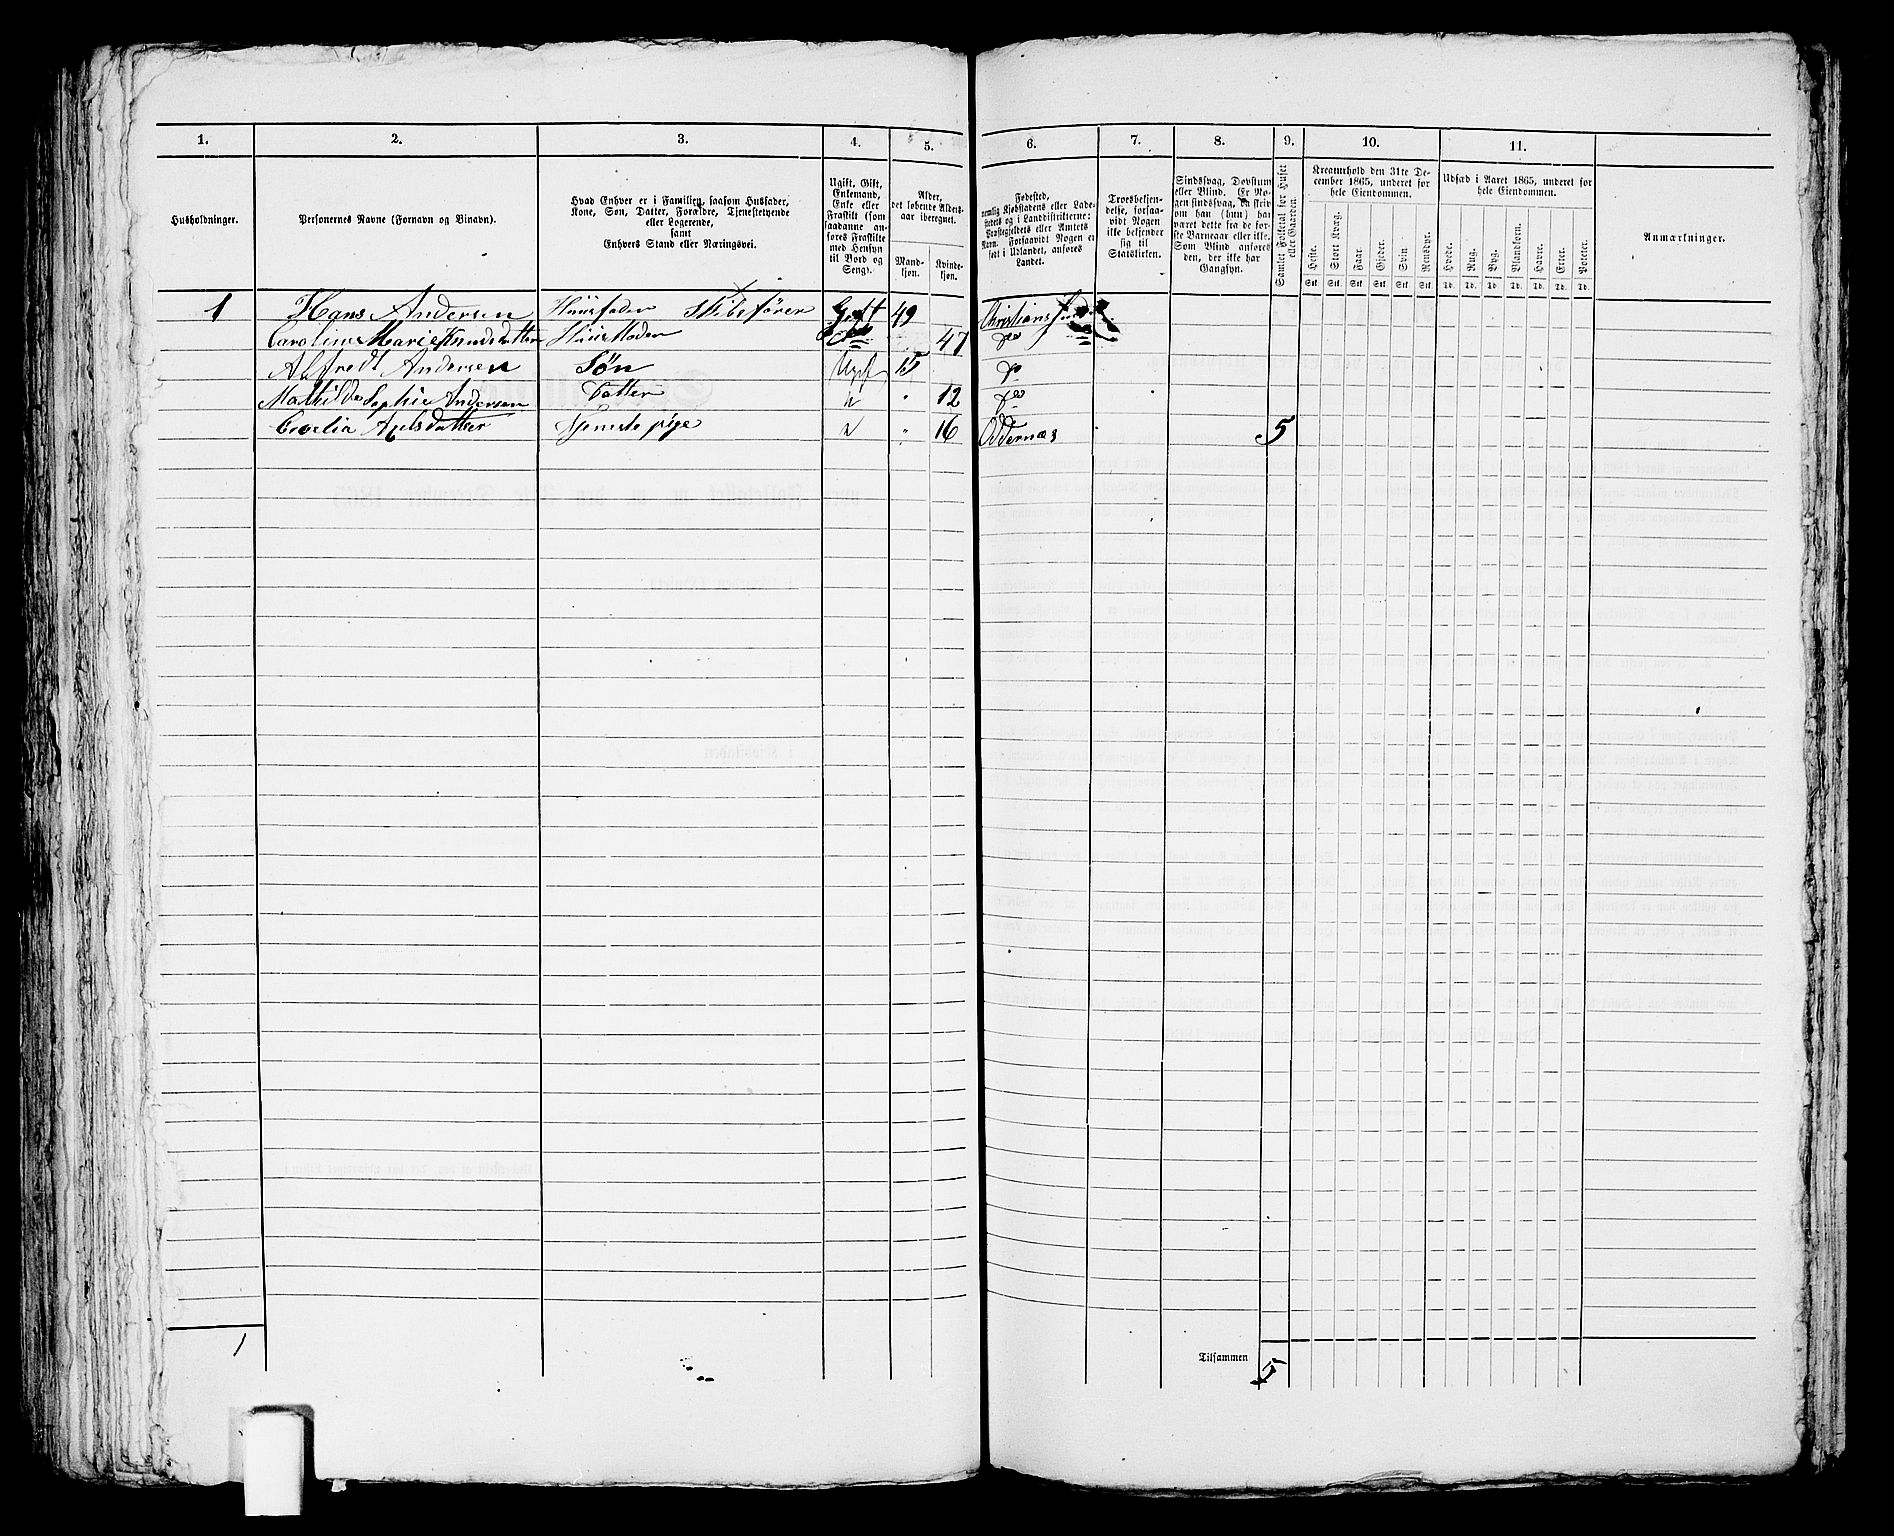 1. 2. 3. 4. 5. 6. 7. 8. 9. 10. 11.
Husholdninger.
Personernes Navne (Fornavn og Binavn).
Hvad Enhver er i Familien, saasom Husfader,
Kone, Søn, Datter, Forældre, Tjenestetyende
eller Logerende,
samt
Enhvers Stand eller Næringsvei.
Ugift, Gift,
Enkemand,
Enke eller
Fraskilt (som
saadanne an-
føres Fraskilte
med Hensyn
til Bord og
Seng).
Alder,
det løbende Alders-
aar iberegnet.
Mand-
kjøn.
Kvinde-
kjøn.
Fødested,
nemlig Kjøbstadens eller Lade-
stedets og i Landdistrikterne:
Præstegjeldets eller Amtets
Navn. Forsaavidt Nogen er
født i Udlandet, anføres
Landet.
Troesbekjen-
delse, forsaa-
vidt Nogen
ikke bekjender
sig til
Statskirken.
Sindssvag, Døvstum
eller Blind. Er No-
gen sindssvag, da skriv
om han (hun) har
været dette fra de før-
ste Barneaar eller ikke.
Som Blind anføres
den, der ikke har
Gangsyn.
Samlet Folketal for Huset
eller Gaarden.
Kreaturhold den 31te De-
cember 1865, underet for
hele Eiendommen.
Heste. Stort Kvæg. Faar. Gjeder. Svin. Rensdyr.
Stk. Stk. Stk. Stk. Stk. Stk.
Udsæd i Aaret 1865, underet for
hele Eiendommen.
Hvede. Rug. Byg. Blandkorn. Havre. Erter. Poteter.
Td. Td. Td. Td. Td. Td. Td.
Anmærkninger.
1 Hans Andersen Huusfader Skibsfører Gift 49 Christianssand
Caroline Marie Knudsdatter Huusmoder 47 do
Alfredt Andersen Søn Ugift 15 do
Mathilde Sophie Andersen Datter " " 12 do
Axelsdatter Tjeneste pige " " 16 Oddernæs 5
1
Tilsammen 5